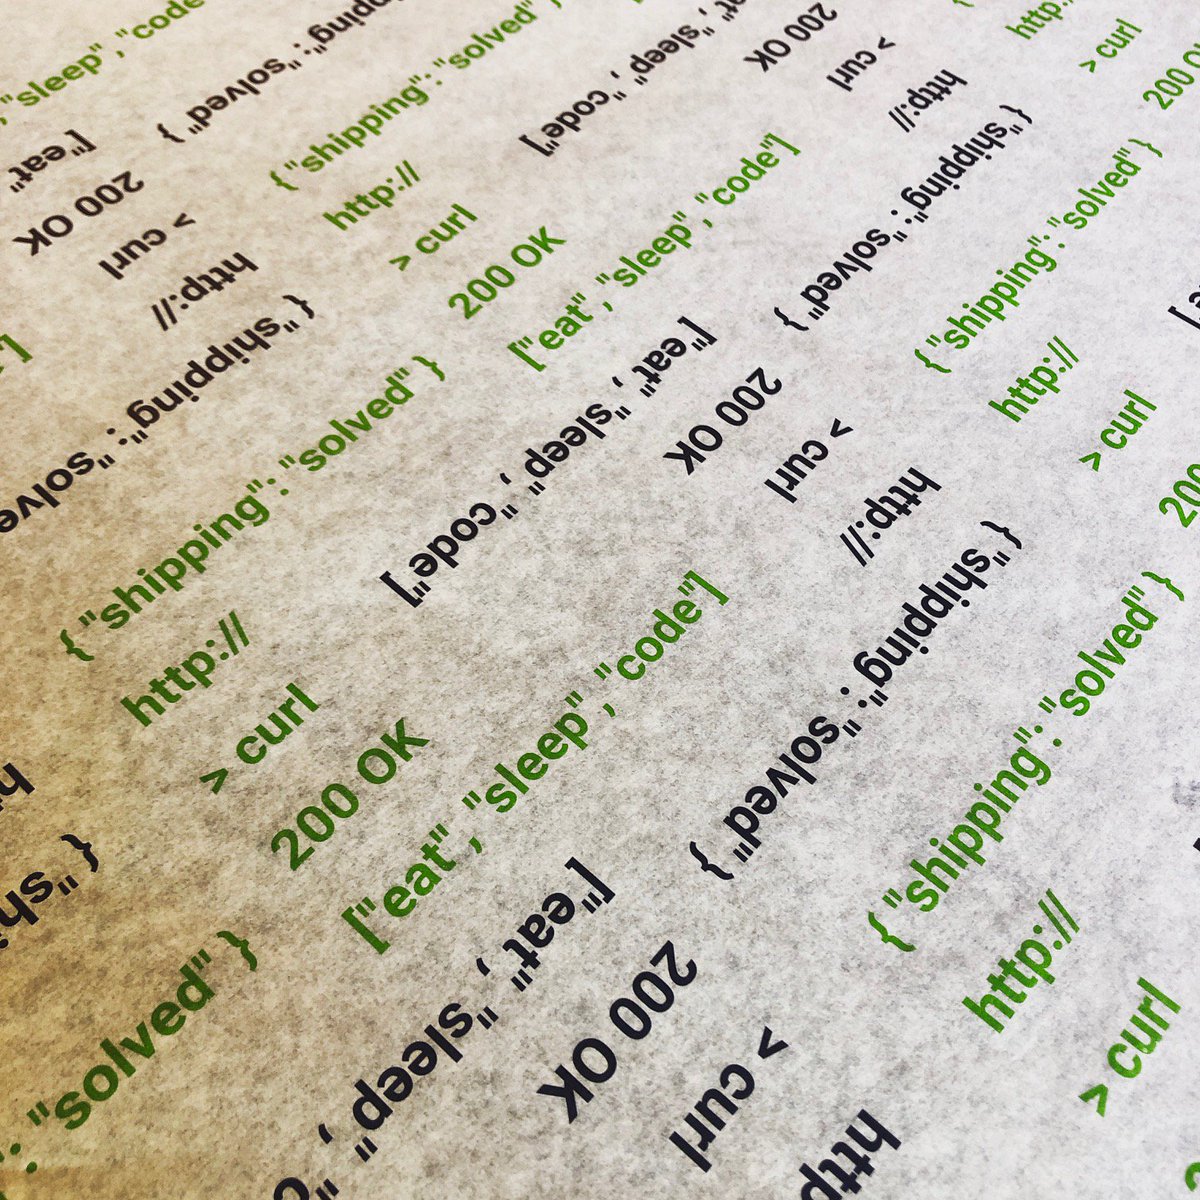 "sleep", "code
{ "shipping": "solved" }
["eat",
200 OK
> curl
http://
{ "shipping": "solved
{ "shipping": "solved"
http://
> curl
200 OK
["eat", "sleep", "code"]
"sleep", "code"]
200 OK
> curl
http://
{ "shipping": "solved" }
http://
> curl
200
{ "shipping": "solved" }
http://
> curl
200
{ "shipping": "solved" }
http://
> curl
200 OK
["eat", "sleep", "code"]
["eat", "sleep", "code"]
200 OK
> curl
http://
{ "shipping": "solved" }
{ "shipping": "solved" }
http://
> curl
: "solved" }
["eat", "sleep",
200 OK
> curl
http